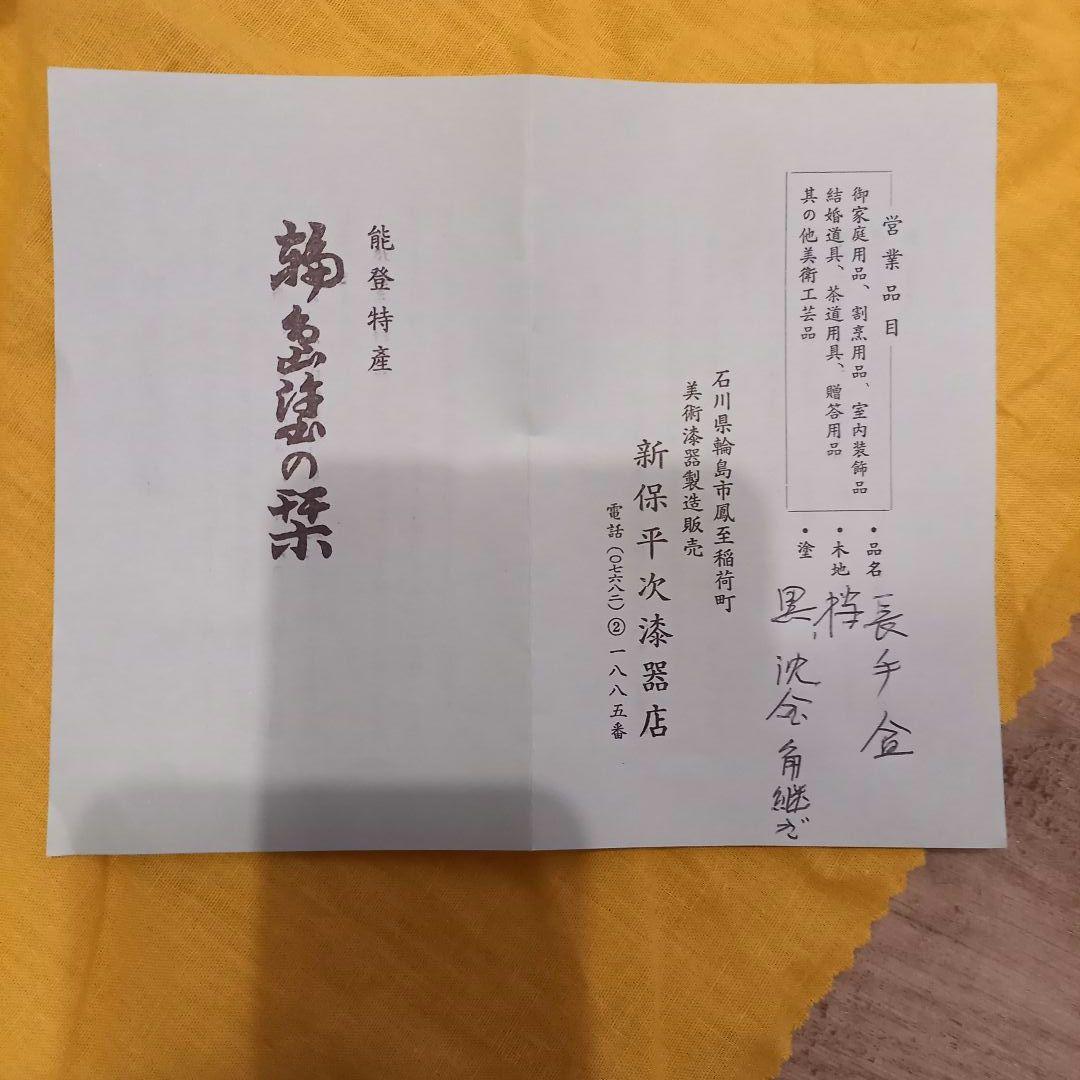 営業品目
御家庭用品、割烹用品、室内装飾品
結婚道具、茶道用具、贈答用品
其の他美術工芸品
・品名 長手盆
・木地
・塗 黒、沈金角継ぎ
石川県輪島市鳳至稲荷町
美術漆器製造販売
新保平次漆器店
電話(〇七六八二)②一八八五番
能登特産
輪島塗の栞